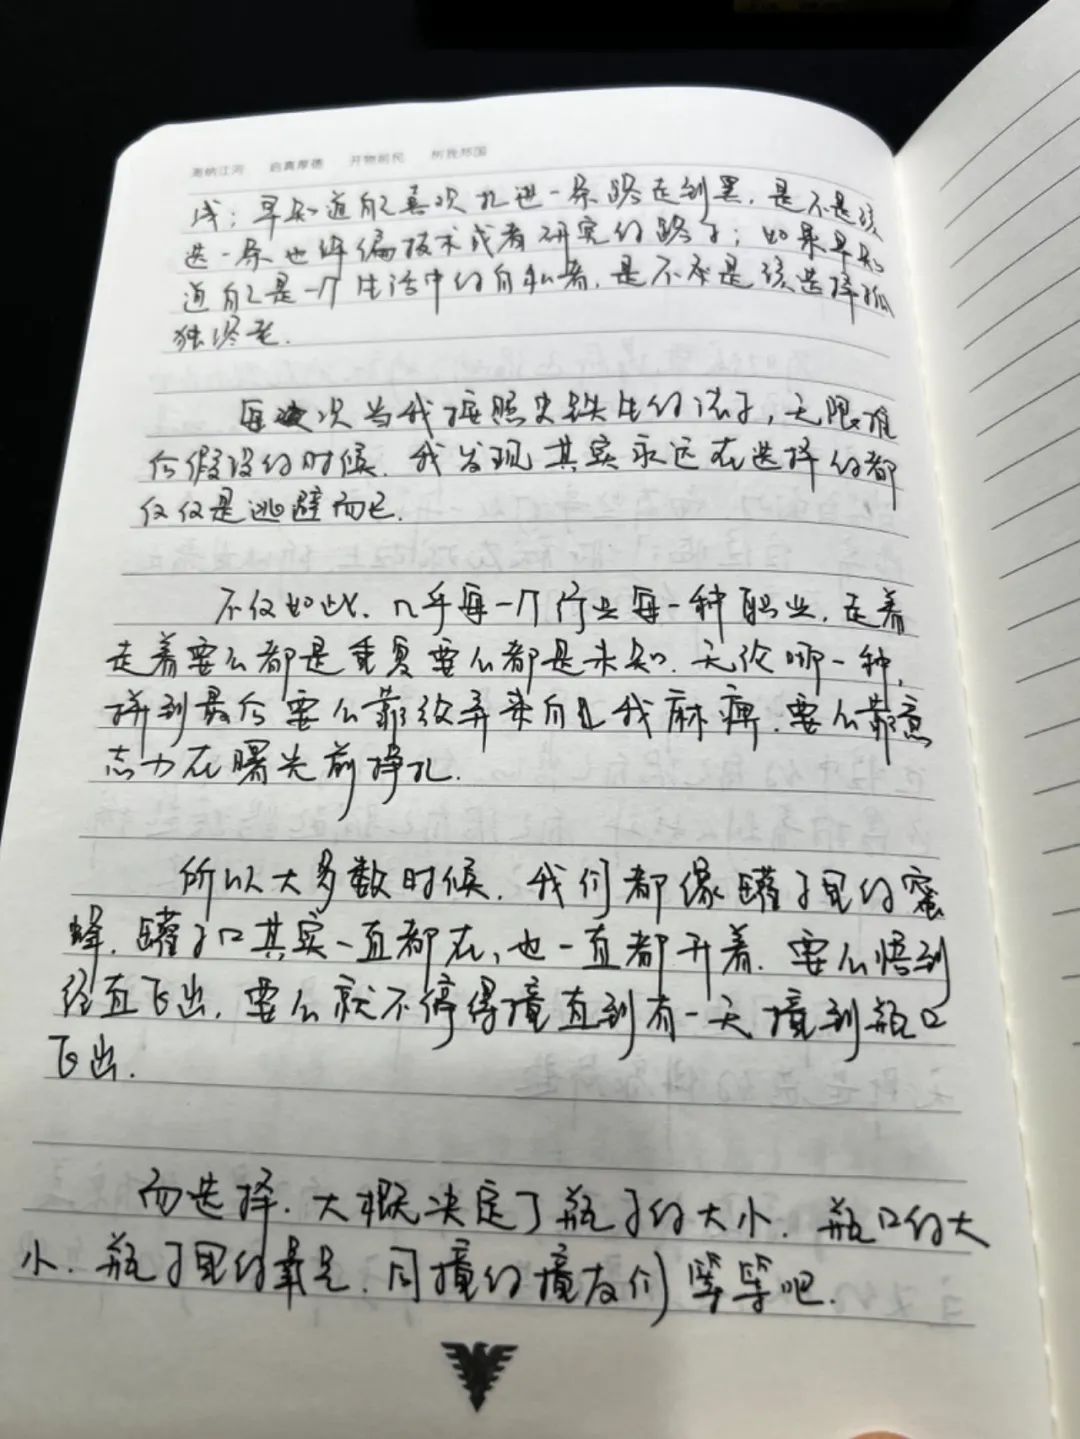 海纳江河 启真厚德 开物前民 树我邦国
浅；早知道自己喜欢扎进一条路走到黑，是不是该
选一条也许偏技术或者研究的路子；如果早知
道自己是一个生活中的自私者，是不是该选择孤
独终老.
每次当我按照史铁生的法子，无限推
后假设的时候，我发现其实永远在选择的都
仅仅是逃避而已.
不仅如此，几乎每一个行业每一种职业，走着
走着要么都是重复要么都是未知，无论哪一种，
拼到最后要么靠放弃来自我麻痹，要么靠意
志力在曙光前挣扎.
所以大多数时候，我们都像罐子里的蜜
蜂，罐子口其实一直都在，也一直都开着，要么悟到
径直飞出，要么就不停得撞直到有一天撞到瓶口
飞出.
而选择，大概决定了瓶子的大小，瓶口的大
小，瓶子里的氧气，同撞的撞友们等等吧.